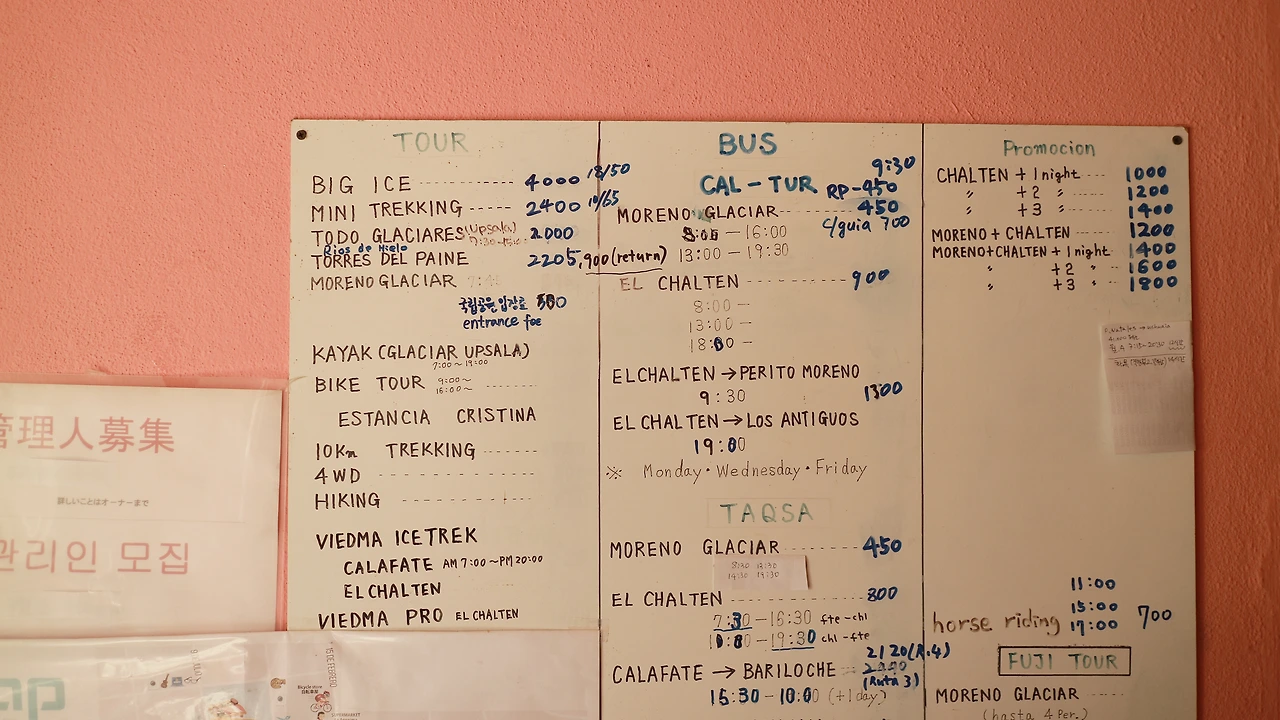 TOUR
BIG ICE ---------- 4000 18/50
MINI TREKKING ----- 2400 10/65
TODO GLACIARES (Upsala) 2000
Rios de Hielo
TORRES DEL PAINE 2205, 900 (return)
MORENO GLACIAR
국립공원 입장료
entrance fee
KAYAK (GLACIAR UPSALA)
7:00 ~ 19:00
BIKE TOUR 9:00~
16:00~
ESTANCIA CRISTINA
10Km TREKKING -------
4WD ----------
HIKING ----------
VIEDMA ICETREK
CALAFATE AM 7:00 ~ PM 20:00
EL CHALTEN
VIEDMA PRO EL CHALTEN
BUS
9:30
CAL-TUR RP-450
MORENO GLACIAR ------- 450
8:00 - 16:00 c/guia 700
13:00 - 19:30
EL CHALTEN ---------- 900
8:00 -
13:00 -
18:00 -
EL CHALTEN → PERITO MORENO
9:30 1300
EL CHALTEN → LOS ANTIGUOS
19:00
※ Monday・Wednesday・Friday
TAQSA
MORENO GLACIAR ------- 450
8:30 13:30
14:30 19:30
EL CHALTEN ---------- 800
7:30 - 16:30 fte-chl
- 19:30 chl-fte
2120 (R.4)
CALAFATE → BARILOCHE ---
(Ruta 3)
15:30 - 10:00 (+1day)
Promocion
CHALTEN + 1 night ---- 1000
〃 +2 〃 ---- 1200
〃 +3 〃 ---- 1400
MORENO + CHALTEN ---- 1200
MORENO+CHALTEN + 1 night 1400
〃 +2 〃 -- 1600
〃 +3 〃 -- 1800
11:00
15:00
horse riding 17:00 700
FUJI TOUR
MORENO GLACIAR ----
(hasta 4 Per.)
管理人募集
詳しいことはオーナーまで
관리인 모집
ap
15 DE FEBRERO
Bicycle store
自転車屋
SUPERMARKET